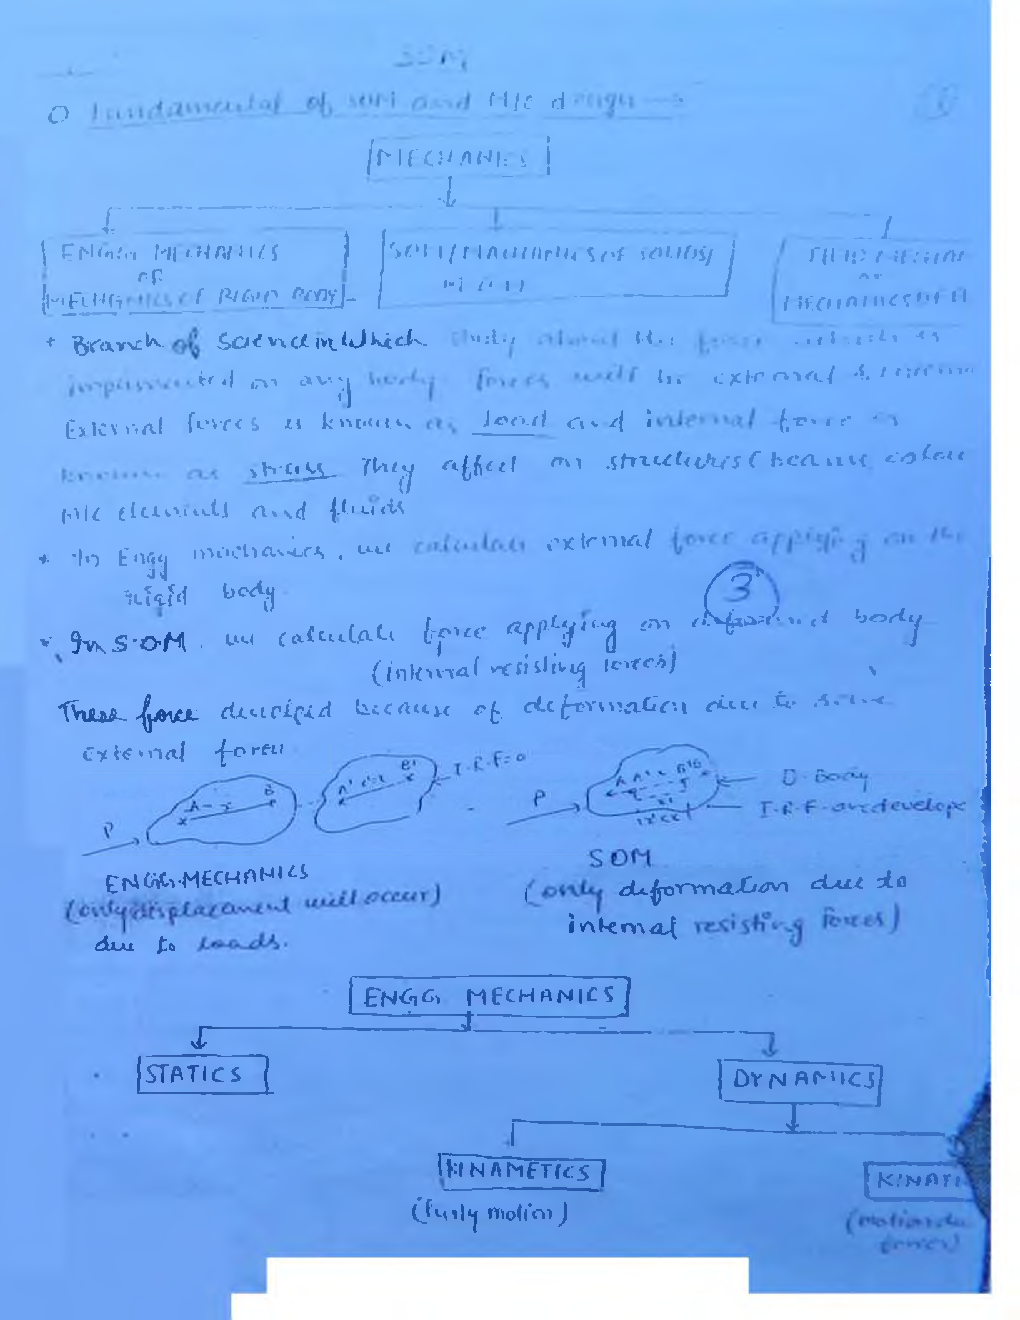 SOM
Fundamental of SOM and M/C design →
MECHANICS
ENGG MECHANICS
or
MECHANICS OF RIGID BODY
SOM/MECHANICS OF SOLIDS/
FLUID MECHAN
or
MECHANICS OF FL
* Branch of Science in Which study about the force which is
on any body forces will be external &
External forces is known as load and internal force is
known as stress They affect on structures (beams, colou
M/C elements and fluids
* In Engg mechanics, we calculate external force applying on the
rigid body.
3
* In S.O.M. we calculate force applying on deformed body
(internal resisting forces)
These force develped because of deformation due to some
external forces
A r B
x x
A' B'
I.R.F=0
P
P
D-Body
I.R.F. are develope
ENGG.MECHANICS
(only displacement will occur)
due to loads.
SOM
(only deformation due to
internal resisting forces)
ENGG MECHANICS
STATICS
DYNAMICS
KINAMETICS
KINATI
(Purly motion)
(motion du
forces)